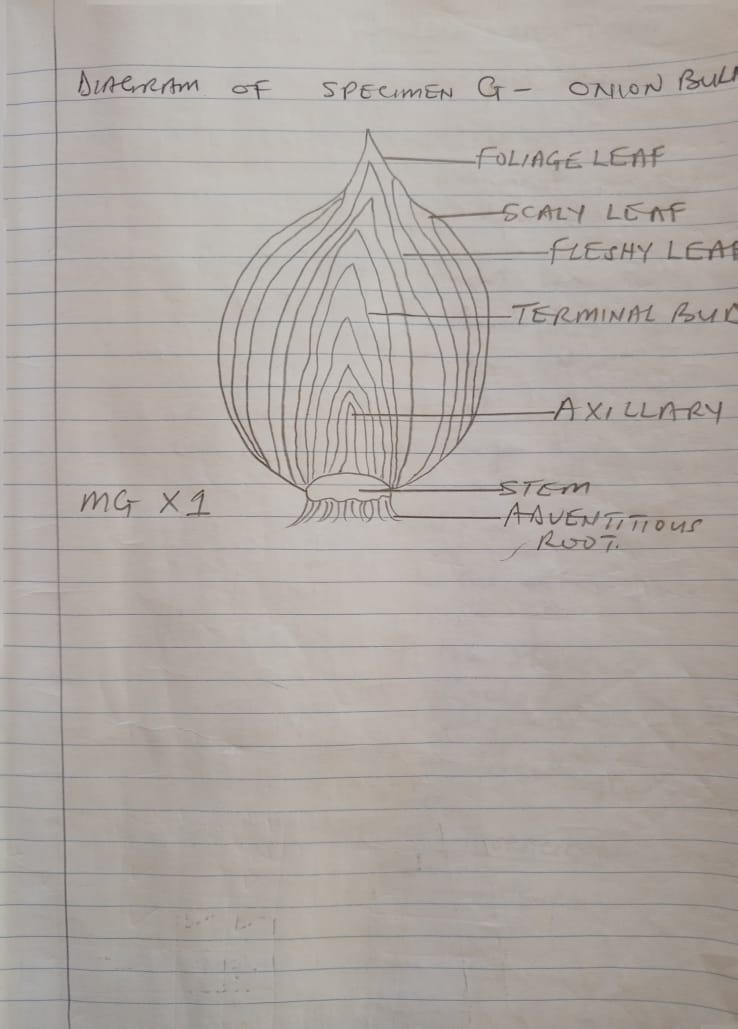 DIAGRAM OF SPECIMEN G- ONION BUL
FOLIAGE LEAF
SCALY LEAF
FLESHY LEAF
TERMINAL BUD
AXILLARY
STEM
MG X1
ADVENTITIOUS
ROOT.